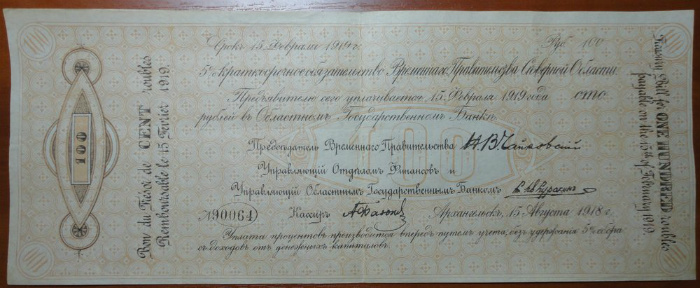 Срокъ 15 Февраля 1919 г.
Руб. 100
5% краткосрочное обязательство Временнаго Правительства Сѣверной Области
Предъявителю сего уплачивается 15 Февраля 1919 года сто
рублей въ Областномъ Государственномъ Банкѣ.
100
Предсѣдатель Временнаго Правительства Н.В. Чайковскій
Управляющій Отдѣломъ Финансовъ и
Управляющій Областнымъ Государственнымъ Банкомъ
№ 90064 Кассиръ
Архангельскъ, 15 Августа 1918 г.
Уплата процентовъ производится впередъ путемъ учета, безъ удержанія 5% сбора
съ доходовъ отъ денежныхъ капиталовъ.
Bon du Trésor de CENT roubles
Remboursable le 15 Février 1919.
100
Treasury Bill for ONE HUNDRED roubles
payable on the 15th of February 1919.